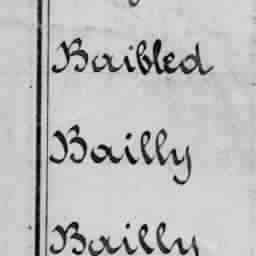 Baibled
Bailly
Bailly